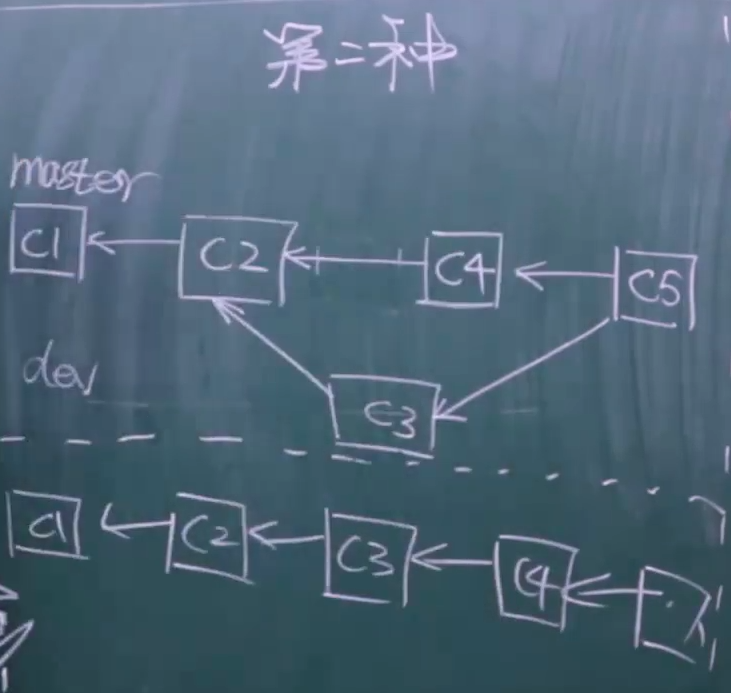 第二种
master
C1 C2 C4 C5
dev
C3
C1 C2 C3 C4